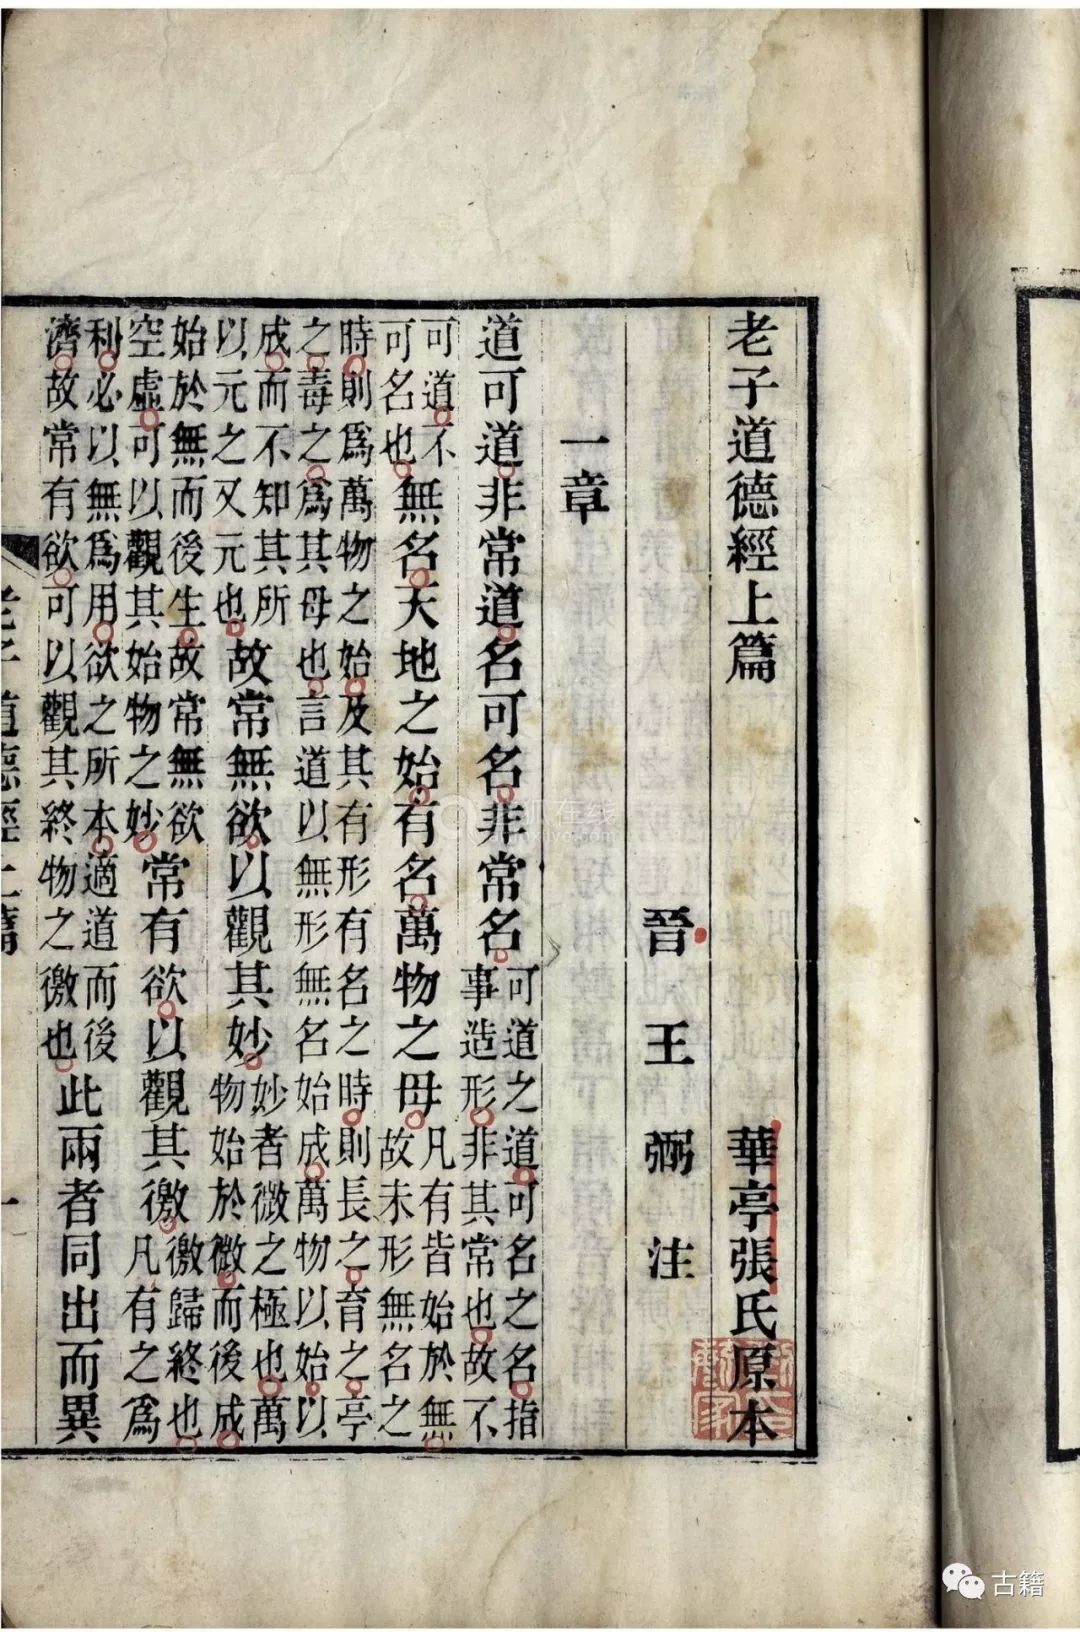 老子道德經上篇 華亭張氏原本
晉 王 弼 注
一章
道可道非常道名可名非常名可道之道可名之名指事造形非其常也故不
可道不可名也無名天地之始有名萬物之母凡有皆始於無故未形無名之
時則爲萬物之始及其有形有名之時則長之育之亭
之毒之爲其母也言道以無形無名始成萬物以始以
成而不知其所以元之又元也故常無欲以觀其妙妙者微之極也萬物始於微而後成
始於無而後生故常無欲空虛可以觀其始物之妙常有欲以觀其徼徼歸終也凡有之爲
利必以無爲用欲之所本適道而後濟故常有欲可以觀其終物之徼也此兩者同出而異
老子道德經上篇 一
古籍